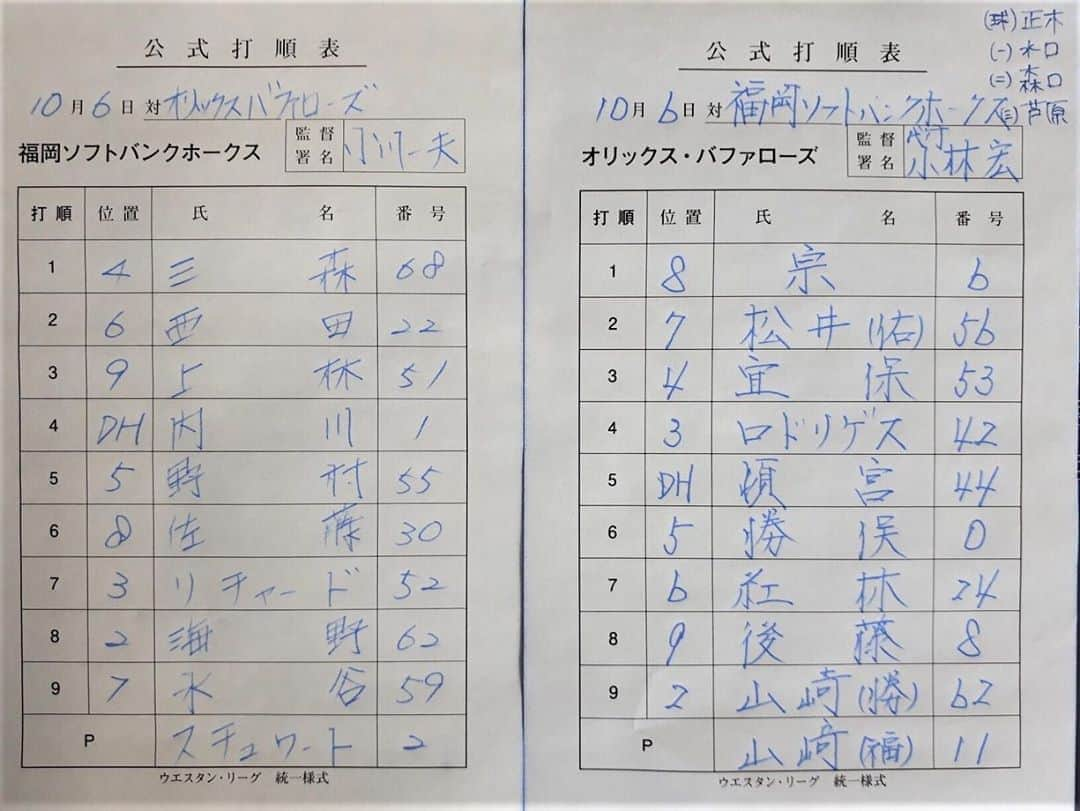 公式打順表
10月6日 対 オリックスバファローズ
福岡ソフトバンクホークス 監督署名 小川一夫
打順 位置 氏名 番号
1 4 三森 68
2 6 西田 22
3 9 上林 51
4 DH 内川 1
5 5 野村 55
6 8 佐藤 30
7 3 リチャード 52
8 2 海野 62
9 7 水谷 59
P スチュワート 2
ウエスタン・リーグ 統一様式
(球)正木
(一)水口
(二)森口
(三)芦原
公式打順表
10月6日 対 福岡ソフトバンクホークス
オリックス・バファローズ 監督署名 代行 小林宏
打順 位置 氏名 番号
1 8 宗 6
2 7 松井(佑) 56
3 4 宜保 53
4 3 ロドリゲス 42
5 DH 頓宮 44
6 5 勝俣 0
7 6 紅林 24
8 9 後藤 8
9 2 山崎(勝) 62
P 山﨑(福) 11
ウエスタン・リーグ 統一様式